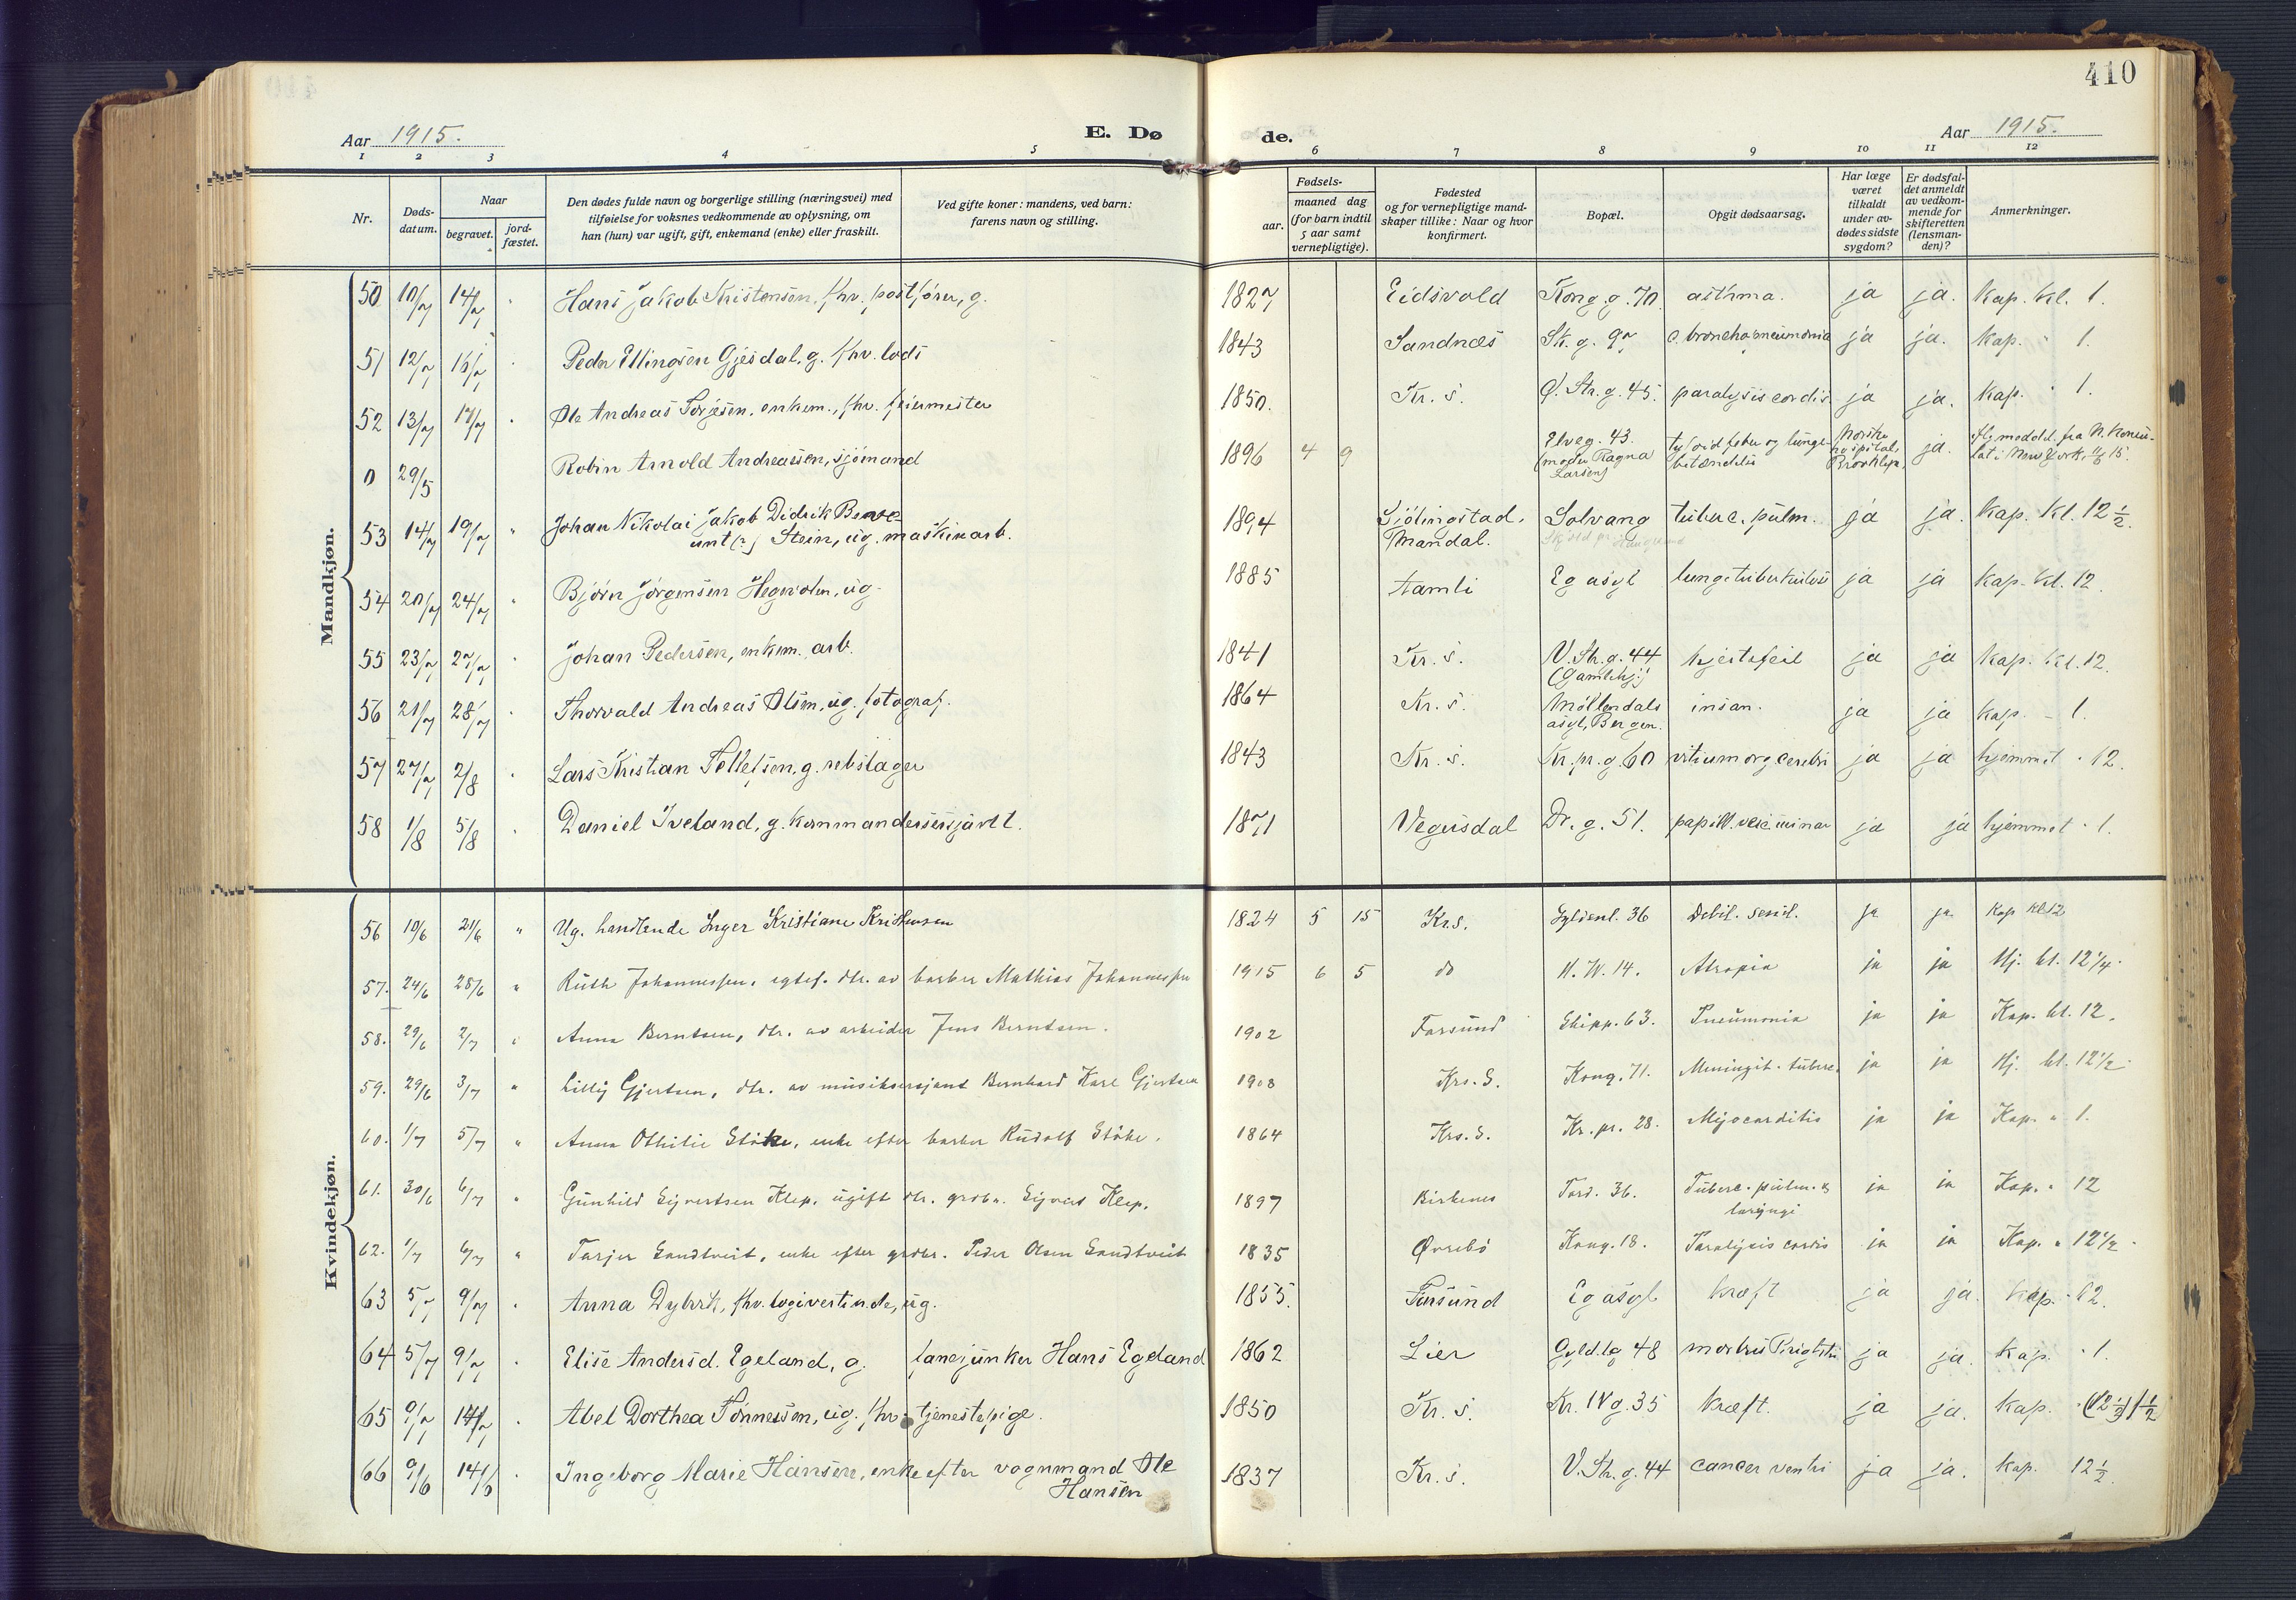 410
Aar 1915.
E. Dø
de.
Aar 1915.
1 2 3 4 5 6 7 8 9 10 11 12
Nr.
Døds-
datum.
Naar
begravet.
jord-
fæstet.
Den dødes fulde navn og borgerlige stilling (næringsvei) med
tilføielse for voksnes vedkommende av oplysning, om
han (hun) var ugift, gift, enkemand (enke) eller fraskilt.
Ved gifte koner: mandens, ved barn:
farens navn og stilling.
Fødsels-
aar.
maaned dag
(for barn indtil
5 aar samt
vernepligtige).
Fødested
og for vernepligtige mand-
skaper tillike: Naar og hvor
konfirmert.
Bopæl.
Opgit dødsaarsag.
Har læge
været
tilkaldt
under av-
dødes sidste
sygdom?
Er dødsfal-
det anmeldt
av vedkom-
mende for
skifteretten
(lensman-
den)?
Anmerkninger.
Mandkjøn.
50 10/7 14/7 " Hans Jakob Kristensen, fhv. postfører, g. 1827 Eidsvold Kong. g. 70 asthma. ja ja. Kap. kl. 1.
51 12/7 16/7 " Peder Ellingsen Gjesdal, g. fhv. lods 1843 Sandnes Sk. g. 97 c. bronchopneumonia ja ja. Kap. " 1.
52 13/7 17/7 " Ole Andreas Torjesen, enkem., fhv. feiermester 1850. Kr. s. Ø. Str. g. 45. paralysis cordis ja ja. Kap. " 1.
0 29/5 Robin Arnold Andreassen, sjömand 1896 4 9 Elveg. 43. (moder Ragna Larsen) tyfoidfeber og lunge-betændelse Norske hospital, Brooklyn ja. iflg. meddel. fra N. Konsu-lat i New York, 11/6 15.
53 14/7 19/7 " Johan Nikolai Jakob Didrik
unt (?) Stein, ug. maskinarb. 1894 Sjölingstad, Mandal. Solvang tuberc. pulm. ja ja. Kap. kl. 12 1/2.
54 20/7 24/7 " Bjørn Jörgensen Hegenolen, ug. 1885 Aamli Eg asyl lungetuberkulose ja ja Kap. kl. 12.
55 23/7 27/7 " Johan Pedersen, enkem. arb. 1841 Kr. s. V. Str. g. 44 (Gamlehj.) hjertefeil ja ja Kap. kl. 12.
56 21/7 28/7 " Thorvald Andreas Olsen, ug. fotograf. 1864 Kr. s. Möllendals asyl, Bergen. insan. ja ja Kap. - 1.
57 27/7 2/8 " Lars Kristian Tellefsen, g. rebslager 1843 Kr. s. Kr. pr. g. 60 vitium org. cerebri ja ja hjemmet " 12.
58 1/8 5/8 " Daniel Iveland, g. kommandersersjant. 1871 Vegusdal Dr. g. 51. papill. ja ja hjemmet " 1.
Kvindekjøn.
56 10/6 21/6 " Ug. handlende Inger Kristiane Kristensen 1824 5 15 Kr.s. Gyldenl. 36 Debil. senil. ja ja Kap kl 12
57. 24/6 28/6 " Ruth Johannessen, egtef. dtr. av barber Mathias Johannessen 1915 6 5 do H. W. 14. Atropia ja ja Hj. kl. 12 1/4.
58. 29/6 2/7 " Anna Berntsen, dtr. av arbeider Jens Berntsen. 1902 Farsund Skipp. 63. Pneumonia ja ja Kap. kl. 12.
59. 29/6 3/7 " Lilly Gjertsen, dtr. av musiksersjant Bernhard Karl Gjertsen 1908 Krs. S. Kong. 71. Meningit. tuberc. ja ja Hj. kl. 12 1/2.
60. 1/7 5/7 " Anna Othilie Stöke, enke efter barber Rudolf Stöke. 1864 Krs. S. Kr. pr. 28. Myocarditis ja ja Kap. " 1.
61. 30/6 6/7 " Gunhild Sigvertsen Klep, ugift dtr. grdbr. Sigvart Klep. 1897 Birkenes Tord. 36. Tuberc. pulm. & laryngi ja ja Kap. " 12
62. 1/7 6/7 " Tarjer Sandtveit, enke efter grdbr. Peder Olsen Sandtveit 1835 Øvrebö Kong. 18. Paralysis cordis ja ja Kap. " 12 1/2.
63 5/7 9/7 " Anna Dybeck, fhv. logivertinde, ug. 1855. Farsund Eg asyl kræft ja ja. Kap. " 12.
64 5/7 9/7 " Elise Andersd. Egeland, g. fanejunker Hans Egeland 1862 Lier Gyld. lg 48 morbus ja ja. Kap. " 1.
65 9/7 14/7 " Abel Dorthea Tönnessen, ug. fhv. tjenestepige. 1850 Kr. s. Kr. IV g. 35 kræft. ja ja. Kap. " (12 1/2) 1 1/2
66 9/6 14/6 " Ingeborg Marie Hansen, enke efter vognmand Ole
Hansen 1837 Kr. s. V. Str. g. 44 cancer ventri ja ja. Kap. 12 1/2.